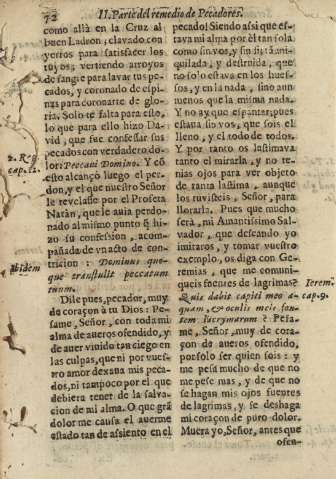 72
II. Parte del remedio de Pecadores.
como allà en la Cruz al
buen Ladron; clavado con
yerros para satisfacer los
tuyos, vertiendo arroyos
de sangre para lavar tus pe-
cados, y coronado de espi-
nas para coronarte de glo-
ria. Solo te falta para esto,
lo que para ello hizo Da-
vid, que fue confessar sus
pecados con verdadero do-
lor: Peccavi Domino. Y cō
esto alcançò luego el per-
don, y el que nuestro Señor
le revelasse por el Profeta
Natàn, que le avia perdo-
nado al mismo punto q̄ hi-
zo su confession, acom-
pañada de vn acto de con-
tricion: Dominus quo-
que transtulit peccatum
tuum.
Dile pues, pecador, muy
de coraçon à tu Dios: Pe-
same, Señor, con toda mi
alma de averos ofendido, y
de aver vivido tan ciego en
las culpas, que ni por vues-
ro amor dexava mis peca-
dos, ni tampoco por el que
debiera tener de la salva-
cion de mi alma. O que grā
dolor me causa el averme
estado tan de assiento en el
2. Reg.
cap. 12.
Ibidem
pecado! Siendo assi que es-
tava mi alma por èl tan sola
como sin vos, y sin sì; tā ani-
quilada, y destruida, que
no solo estava en los hues-
sos, y en la nada, sino aun
menos que la misma nada.
Y no ay que espantar, pues
estava sin vos, que sois el
lleno, y el todo de todos.
Y por tanto os lastimava
tanto el mirarla, y no te-
nias ojos para ver objeto
de tanta lastima, aunque
los tuvisteis, Señor, para
llorarla. Pues que mucho
serà, mi Amantissimo Sal-
vador, que deseando yo
imitaros, y tomar vuestro
exemplo, os diga con Ge-
remias, que me comuni-
queis fuentes de lagrimas?
Quis dabit capiti meo a-
quam, & oculis meis fon-
tem lacrymarum? Pesa-
me, Señor, muy de cora-
çon de averos ofendido,
por solo ser quien sois: y
me pesa mucho de que no
me pese mas, y de que no
se hagan mis ojos fuentes
de lagrimas, y se deshaga
mi coraçon de puro dolor.
Muera yo, Señor, antes que
ofen-
Ierem.
cap. 9.